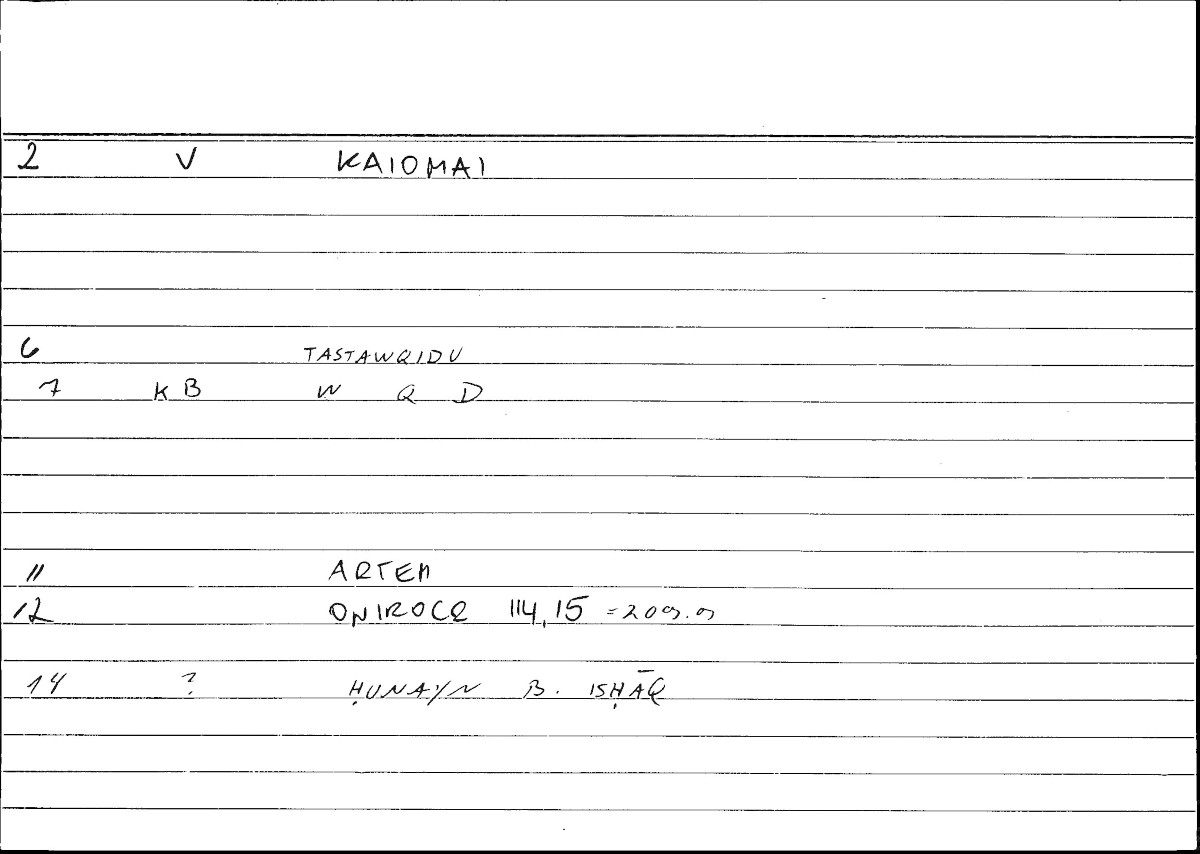 2 V KAIOMAI
6 TASTAWQIDU
7 KB W Q D
11 ARTEM
12 ONIROCR 114,15 = 209.9
14 ? ḤUNAYN B. ISḤĀQ